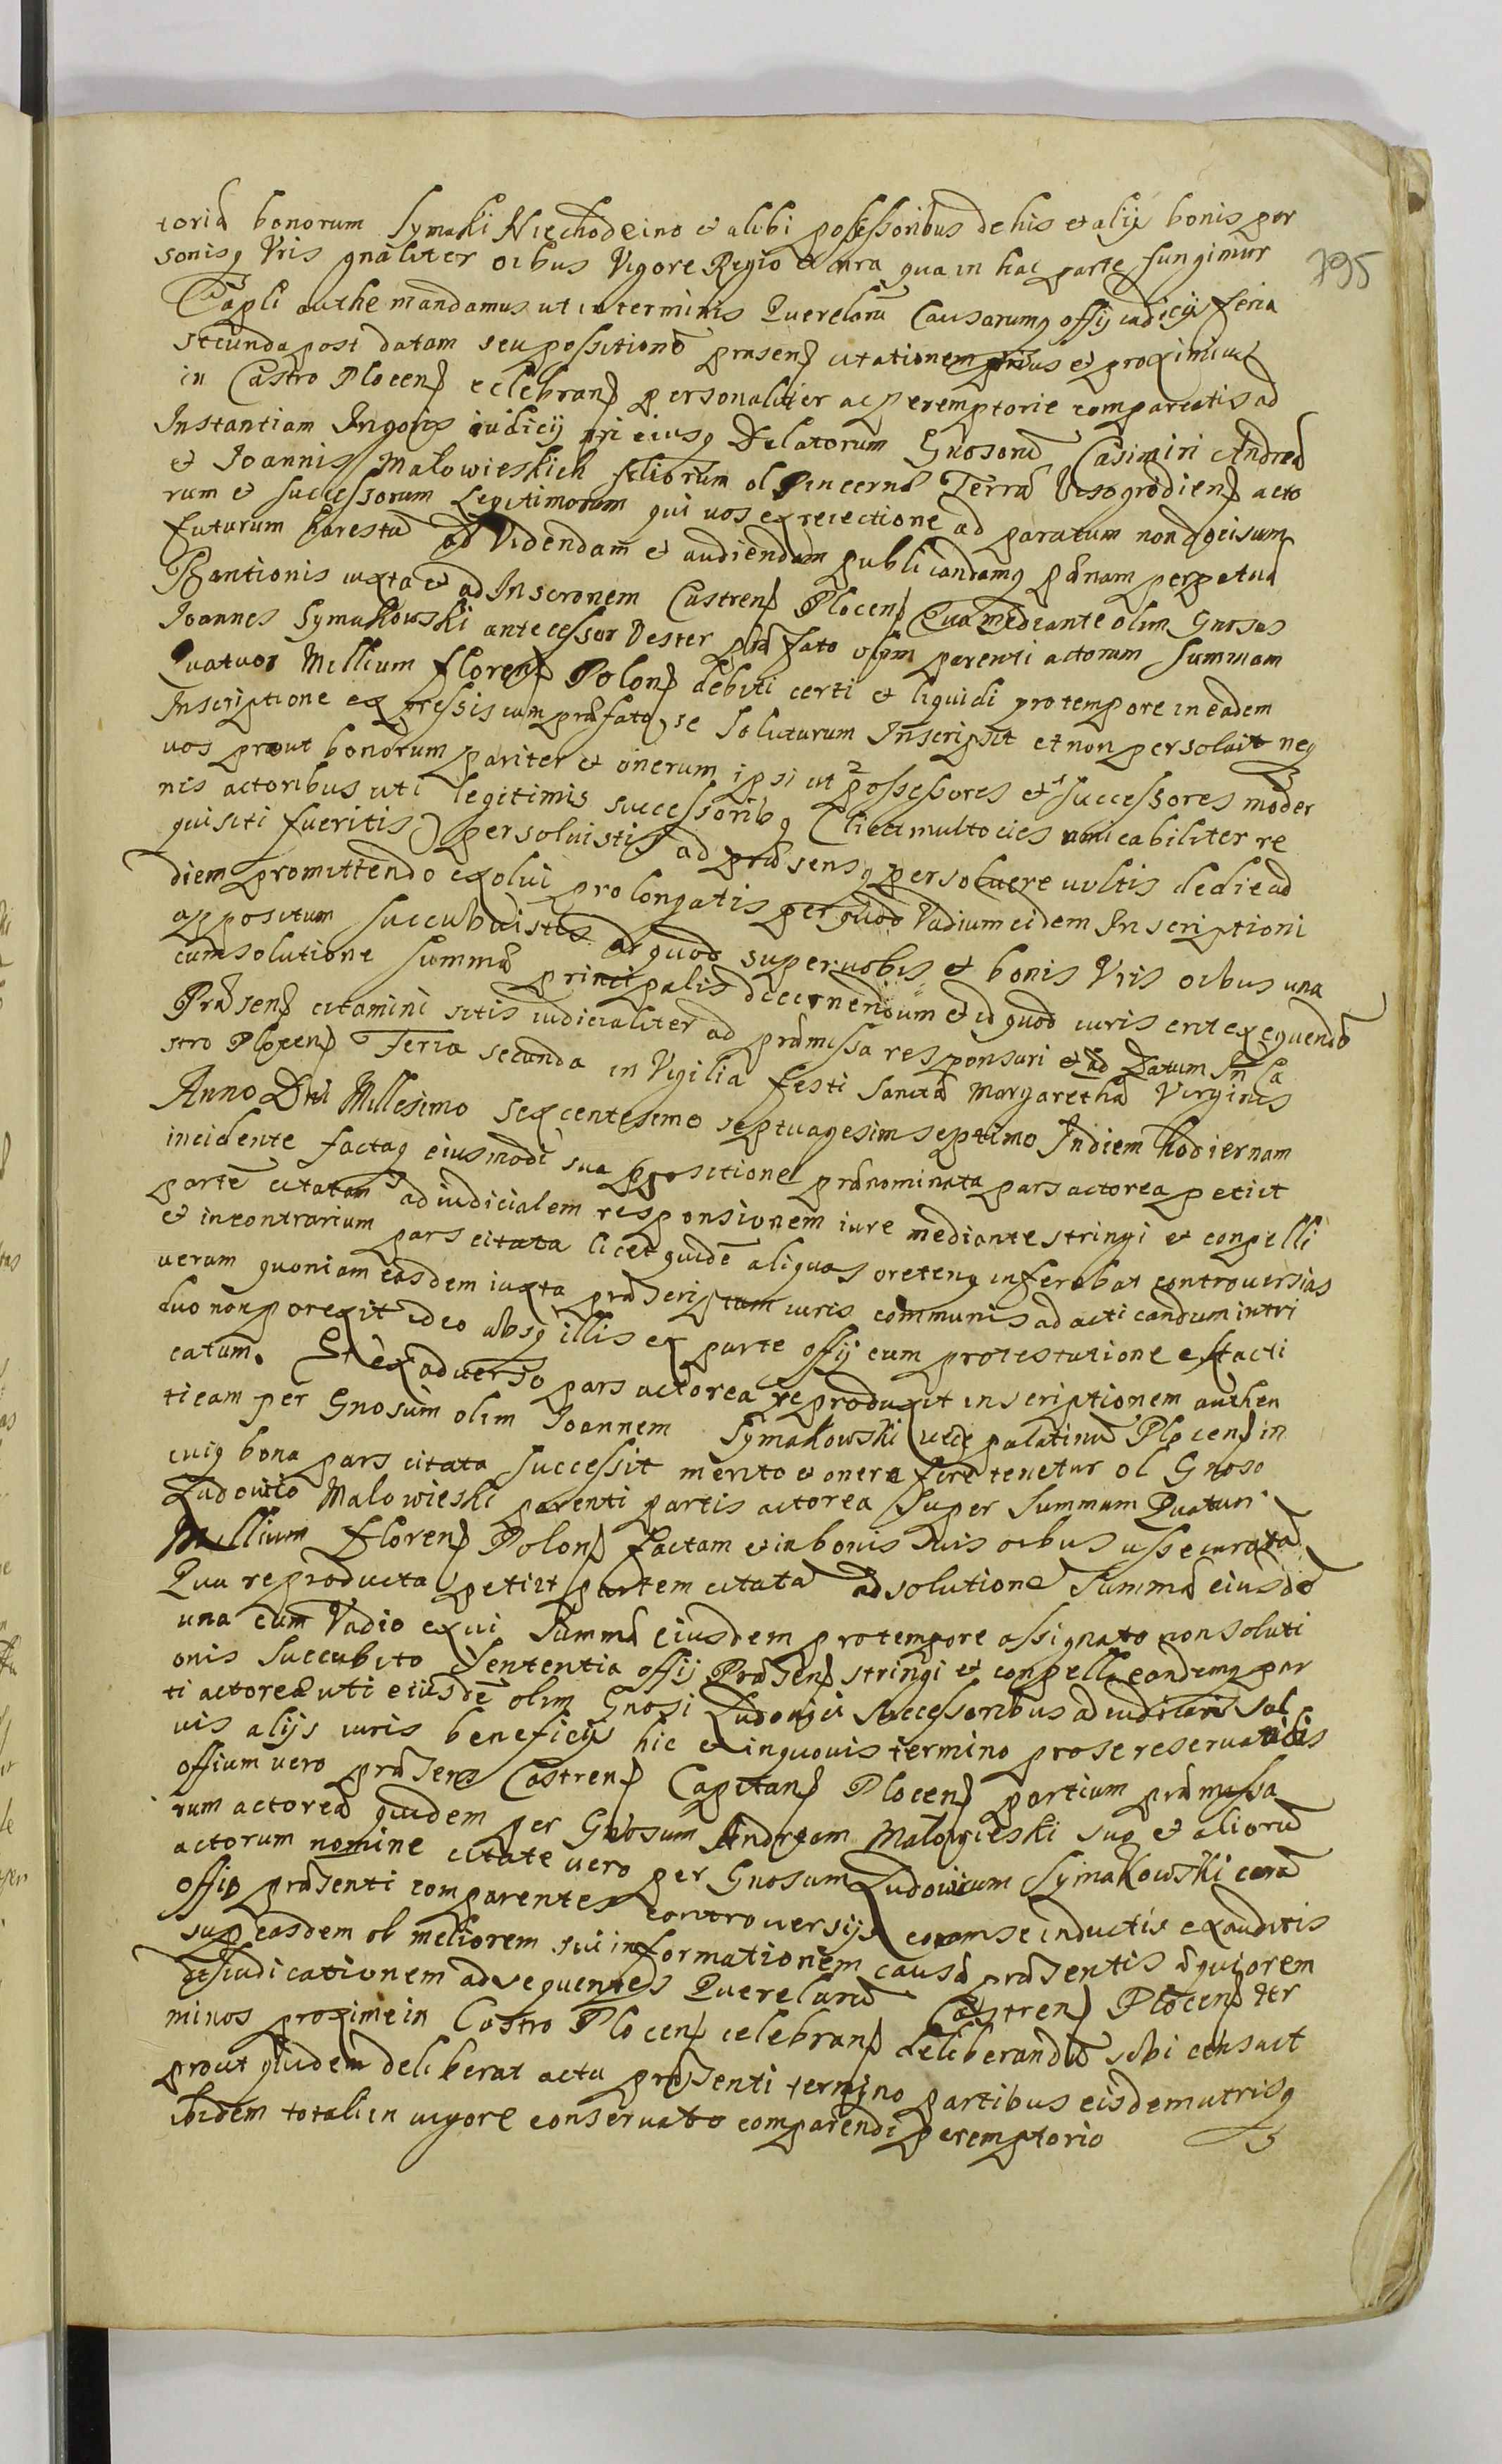 toria bonorum Symaki Niechodzino et alibi possessoribus de his et alijs bonis per
sonisq Vris gnaliter oibus Vigore Regio et nra qua in hac parte fungimur
Capli authe mandamus ut in terminis Querelaru Causarumq offij iudicijs feria
secunda post datam seu positione prasen citationem prius et proximius
in Castro Plocen celebran personaliter ac peremptorie compareatis ad
Instantiam Ingoris iudicij nri eiusq Delatorum Gnosoru Casimiri Andrea
et Joannis Małowieskich filiorum ol Pincerna Terra Visogrodien acto
rum et successorum Legitimorum qui uos ex reiectione ad paratum non
futurum haresta ad Videndam et audiendam publicandamq panam perpetua
Bantionis iuxta et ad Inscronem Castren Plocen Qua mediante olim Gnosus
Joannes Symakowski antecessor Vester prafato olim parenti actorum Summam
Quatuor Millium floren Polon debiti certi et liquidi pro tempore in eadem
Inscriptione expressis cum prafato se Soluturum Inscripsit et non persoluit neq
uos prout bonorum pariter et onerum ipsius 2 possessores et 1 successores moder
nis actoribus uti legitimis successoribq (licet multocies amicabiliter re
quisiti fueritis) persoluistis ad prasensq persoluere uultis de die ad
diem promittendo exolui prolongatis per quod Vadium eidem Inscriptioni
appositum succubuistis ad quod super uobis et bonis Vris oibus una
cum solutione Summa principalis decernendum et id quod iuris erit exequendo
Prasen citamini sitis iudicialiter ad pramissa responsuri et ad Datum In Ca
stro Plocen Feria secunda in Vigilia festi Sancta Margaretha Virginis
Anno Dni Millesimo Sexcentesimo septuagesim septimo Indiem hodiernam
incidente factaq eiusmodi sua propositione pranominata pars actorea petiit
parte citatam ad iudicialem responsionem iure mediante stringi et conpelli
et in contrarium pars citata licet quide aliquas oretenq inferebat controuersias
uerum quoniam easdem iuxta prascriptum iuris communis ad acticandum intri
duo non porexit ideo absq illis ex parte offij cum protestatione est acti
catum. Et ex aduerso pars actorea reproduxit inscriptionem authen
ticam per Gnosum olim Joannem Symakowski palatinu Plocen in
cuiq bona pars citata successit merito et onera ferre tenetur ol Gnoso
Ludouico Małowieski parenti partis actorea Super Summam Quatuor
Millium floren Polon factam et in bonis suis oibus assecurata
Qua reproducta petiit partem citata ad solutione Summa eiusde
una cum Vadio ex ui Summa eiusdem pro tempore assignato non soluti
onis Succubito Sententia offij Prasen stringi et conpelli eandemq par
ti actorea uti eiusde olim Gnosi Ludouici Successoribus adiudicari sal
uis alijs iuris beneficijs hic et in quouis termino pro se reseruatis
offium uero prasens Castren Capitan Plocen partium pramissa
rum actorea quidem per Gnosum Andream Małowieski suo et alioru
actorum nomine citate uero per Gnosum Ludouicum Symakowski cora
offio prasenti comparentes controuersijs coram se inductis exauditis
sup easdem ob meliorem sui informationem causa prasentis aquiorem
diiudicationem ad sequentes Querelaru Castren Plocen ter
minos proxime in Castro Plocen celebran deliberandu sibi censuit
prout quidem deliberat actu prasenti termino partibus eisdem utrisq
ibidem totali in uigore conseruato comparendi peremptorio
795